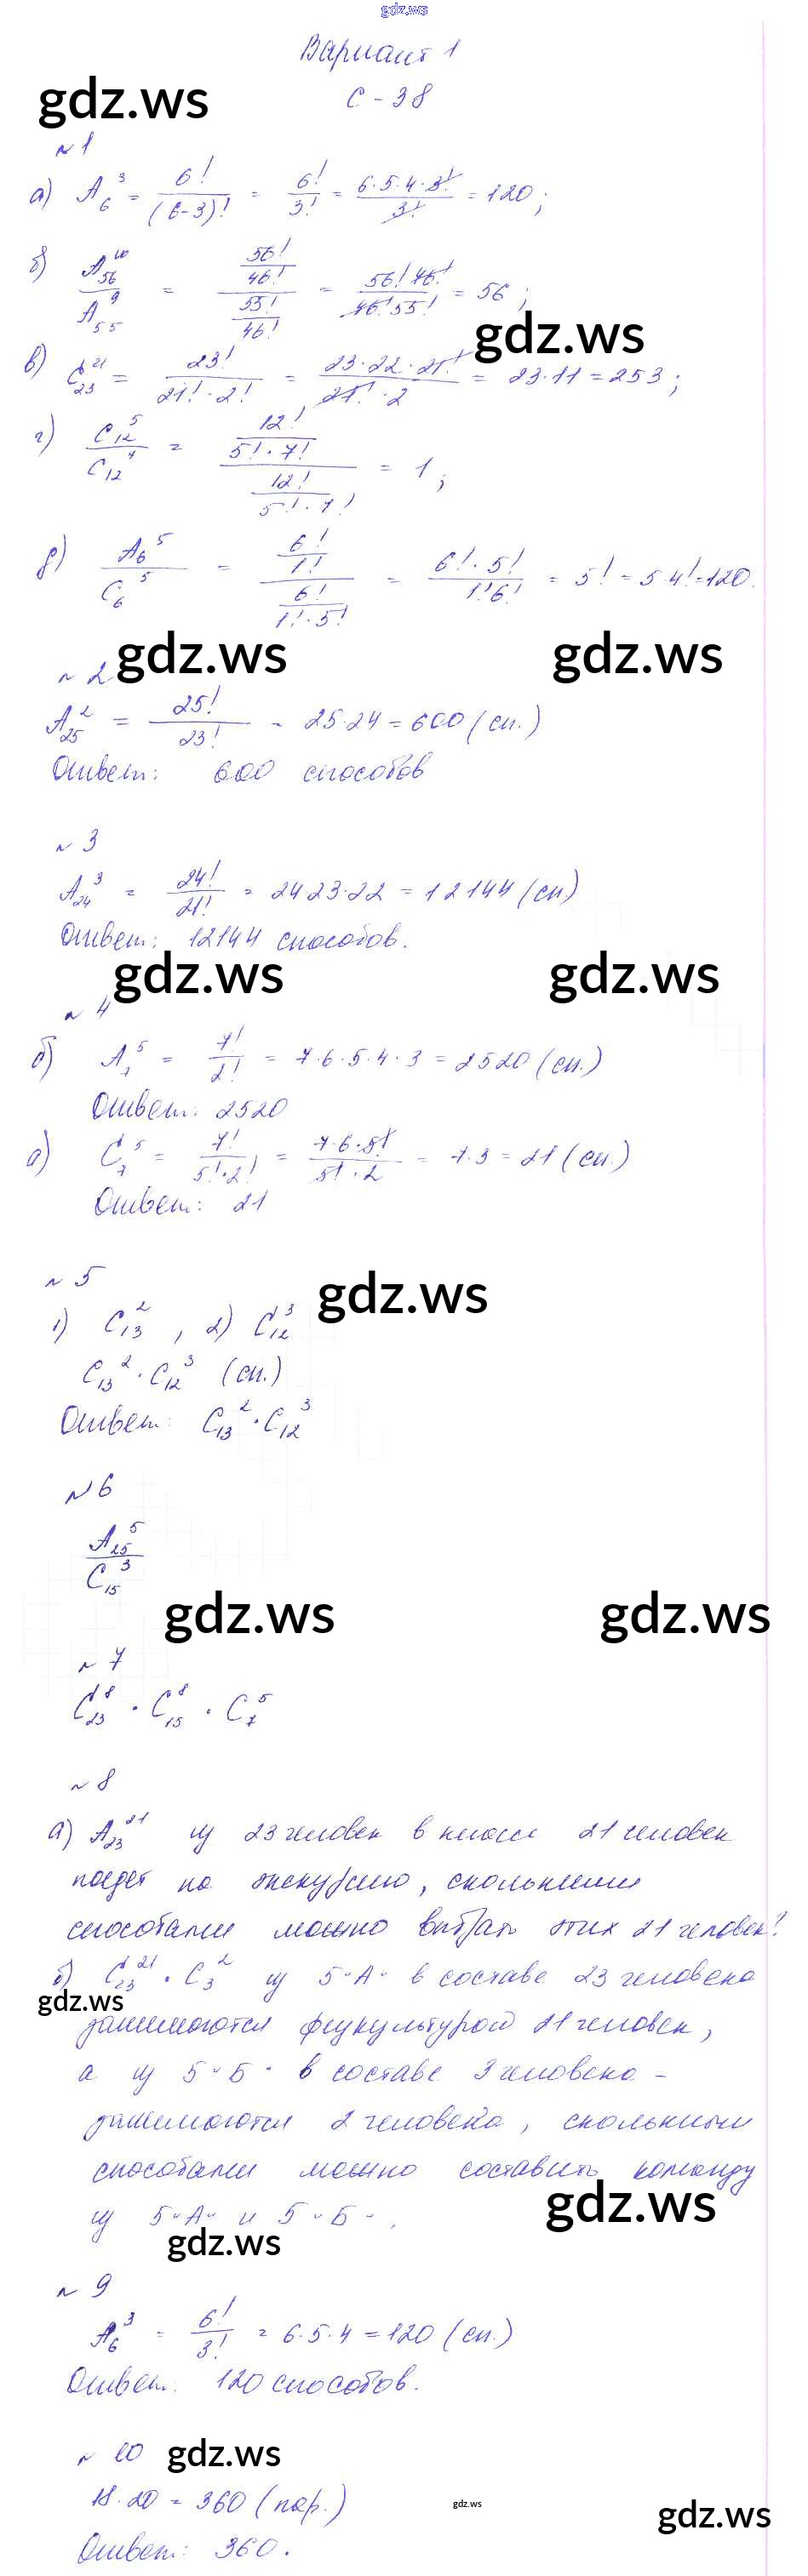 gdz.ws
Вариант 1
gdz.ws
С - 38
№ 1
а) A₆³ = 6!/(6-3)! = 6!/3! = 6·5·4·3!/3! = 120;
б) A₅₆¹⁰/A₅₅⁹ = (56!/46!)/(55!/46!) = 56! 46!/46! 55! = 56;
gdz.ws
в) C₂₃²¹ = 23!/21!·2! = 23·22·21!/21!·2 = 23·11 = 253;
г) C₁₂⁵/C₁₂⁷ = (12!/5!·7!)/(12!/5!·7!) = 1;
д) A₆⁵/C₆⁵ = (6!/1!)/(6!/1!·5!) = 6!·5!/1!6! = 5! = 5·4! = 120.
gdz.ws gdz.ws
№ 2
A₂₅² = 25!/23! = 25·24 = 600 (сп.)
Ответ: 600 способов
№ 3
A₂₄³ = 24!/21! = 24 23·22 = 12144 (сп)
Ответ: 12144 способов.
gdz.ws gdz.ws
№ 4
б) A₇⁵ = 7!/2! = 7·6·5·4·3 = 2520 (сп.)
Ответ: 2520
а) C₇⁵ = 7!/5!·2! = 7·6·5!/5!·2 = 7·3 = 21 (сп.)
Ответ: 21
№ 5
gdz.ws
1) C₁₃² , 2) C₁₂³
C₁₃² · C₁₂³ (сп.)
Ответ: C₁₃² · C₁₂³
№ 6
A₂₅⁵/C₁₅³
gdz.ws gdz.ws
№ 7
C₂₃⁸ · C₁₅⁸ · C₇⁵
№ 8
а) A₂₃²¹ из 23 человек в классе 21 человек
поедет на экскурсию, сколькими
способами можно выбрать этих 21 человек?
б) C₂₃²¹ · C₃² из 5 "А" в составе 23 человека
gdz.ws
занимаются физкультурой 21 человек,
а из 5 "Б" в составе 3 человека -
занимаются 2 человека, сколькими
способами можно составить команду
из 5 "А" и 5 "Б".
gdz.ws
gdz.ws
№ 9
A₆³ = 6!/3! = 6·5·4 = 120 (сп.)
Ответ: 120 способов.
№ 10
gdz.ws
18·20 = 360 (пар.)
gdz.ws
gdz.ws
Ответ: 360.